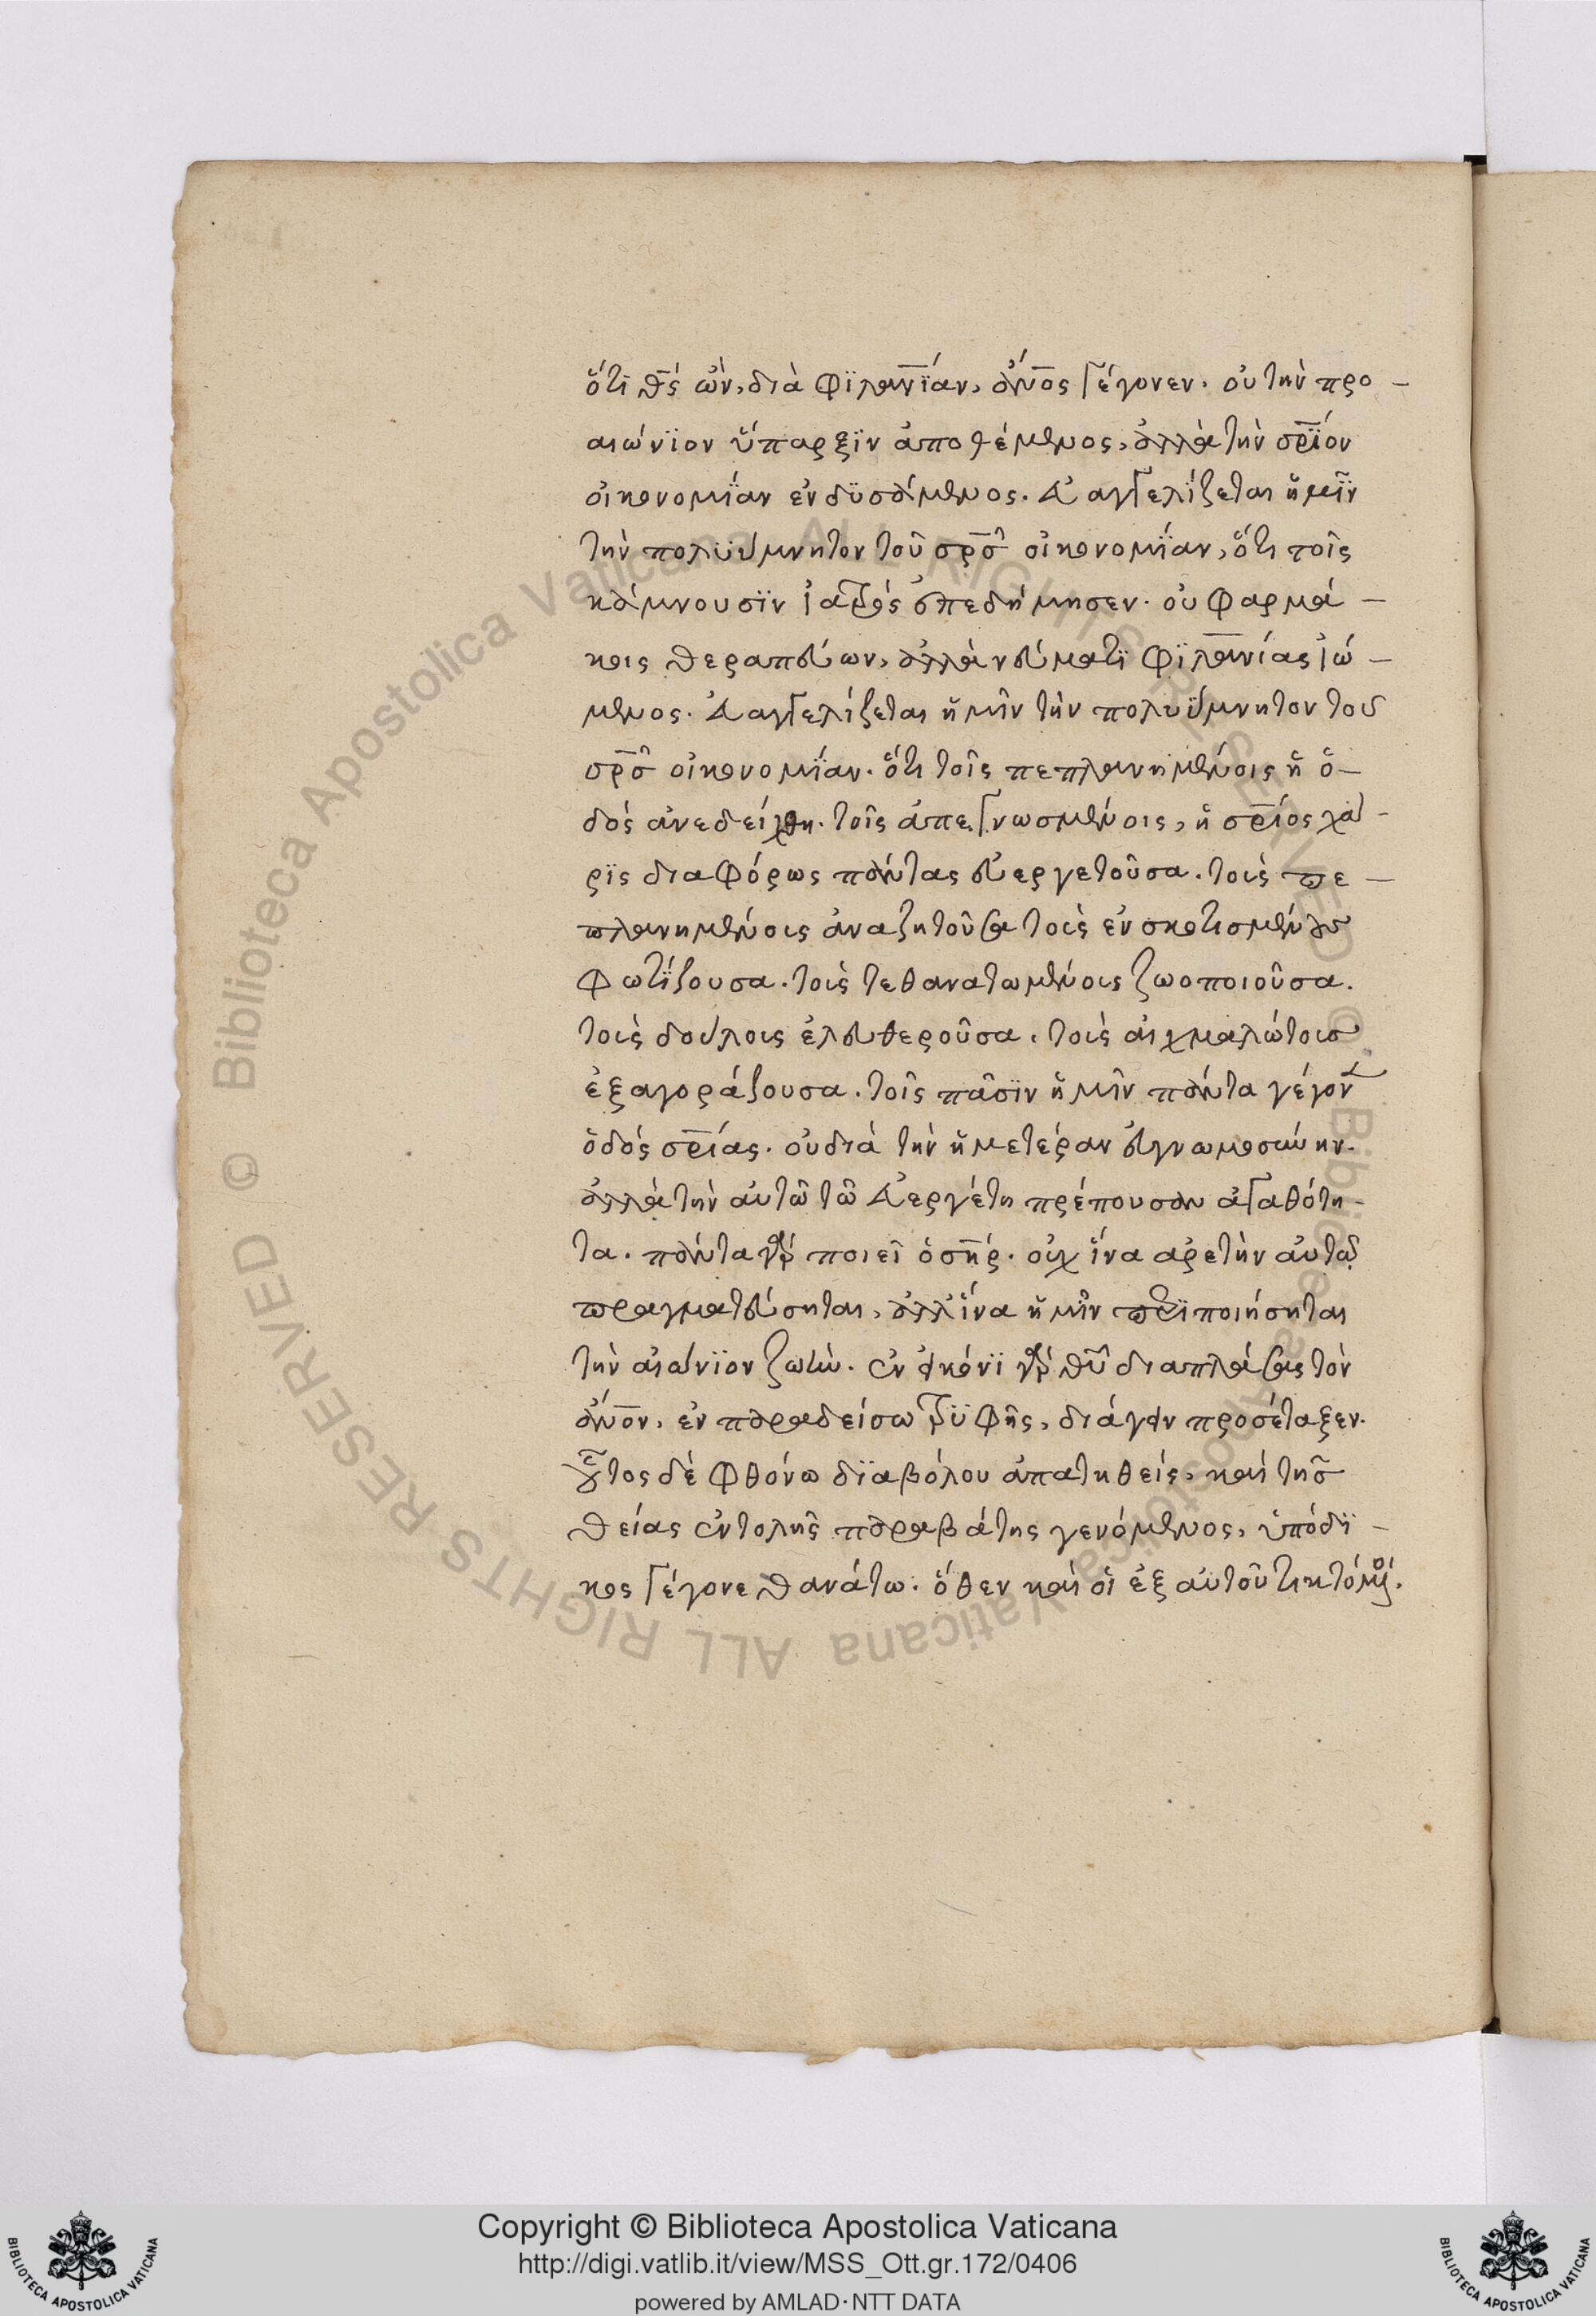 ὅτι θ̅ς ὢν, διὰ φϊλαν̅ϊαν, ἄν̅ος γέγονεν. οὐ τὴν προ-
αιώνϊον ὕπαρξϊν ἀποθέμενος, ἀλλὰ τὴν σρ̅ϊον
οἰκονομΐαν ἐνδϋσάμενος. εὐαγγελΐζεται ἡμῖν
τὴν πολυΰμνητον τοῦ σρ̅σ οἰκονομΐαν, ὅτι τοῖς
κάμνουσϊν ἰατρὸς ἐπεδήμησεν. οὐ φαρμά-
κοις θεραπεύων, ἀλλὰ νεύματϊ φϊλαν̅ίας ἰώ-
μενος. εὐαγγελίζεται ἡμῖν τὴν πολυΰμνητον τοῦ
σρ̅σ οἰκονομΐαν. ὅτι τοῖς πεπλανημένοις ἡ ὁ-
δὸς ἀνεδείχθη. τοῖς ἀπεγνωσμένοις, ἡ σρ̅ίος χά-
ρϊς διαφόρως πάντας εὐεργετοῦσα. τοὶς πε-
πλανημένοις ἀναζητοῦσα τοὶς ἐνσκοτισμένοις
φωτΐζουσα. τοὶς τεθανατωμένοις ζωοποιοῦσα.
τοὶς δούλοις ἐλευθεροῦσα. τοὶς αἰχμαλώτοις
ἐξαγοράζουσα. τοῖς πᾶσϊν ἡμῖν πάντα γέγον
ὁδὸς σρ̅ίας. οὐ διὰ τὴν ἡμετέραν εὐγνωμοσύνην.
ἀλλὰ τὴν αὐτῶ τῶ εὐεργέτη πρέπουσαν ἀγαθότη-
τα. πάντα γὰρ ποιεῖ ὁ ση̅ρ. οὐχ ἵνα ἀρετὴν αὐτῶ
πραγματεύσηται, ἀλλ' ἵνα ἡμῖν περϊποιήσηται
τὴν αἰώνϊον ζωὴν. ἐν εἰκόνϊ γὰρ θ̅υ διαπλάσας τὸν
ἄν̅ον, ἐν παραδείσω τρϋφῆς, διάγειν προσέταξεν.
οὗτος δὲ φθόνω δϊαβόλου ἀπατηθεὶς, καὶ τῆς
θείας ἐντολῆς παραβάτης γενόμενος, ὑπόδϊ-
κος γέγονε θανάτω. ὅθεν καὶ οἱ ἐξ αὐτοῦ τικτόμενοι.
Copyright © Biblioteca Apostolica Vaticana
http://digi.vatlib.it/view/MSS_Ott.gr.172/0406
powered by AMLAD·NTT DATA